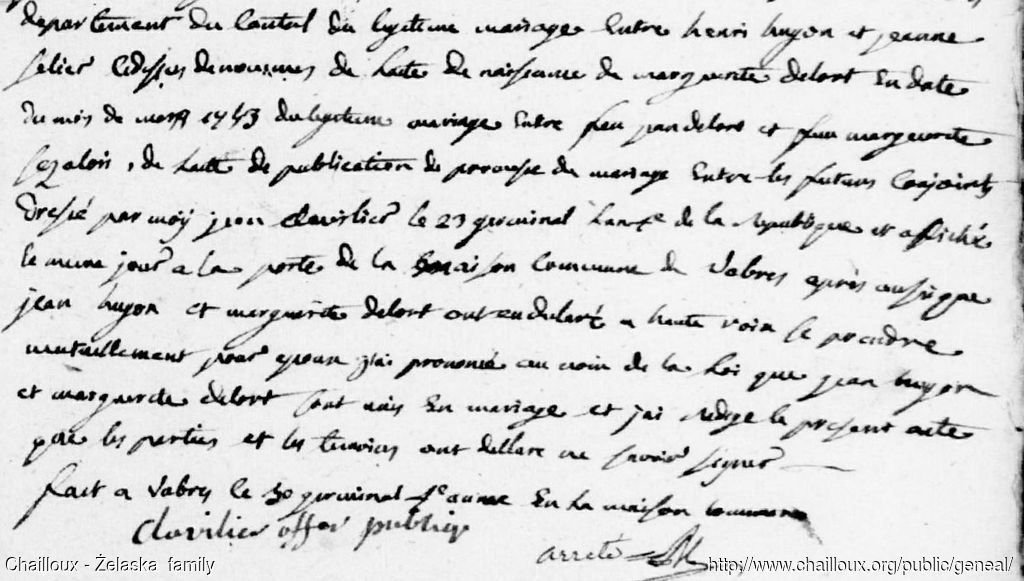 departement du Cantal du legitime mariage Entre henri huyon et jeanne
selier Cidessus denommes de Lacte de naissance de marguerite delort En date
du mois de mars 1743 du legitime mariage Entre feu jean delort et feue marguerite
de Lacte de publication de promesse du mariage Entre les futurs Conjoints
Dressé par moy jean Clavilier le 23 germinal Lan 4e de la Republique et affiché
le meme jour a la porte de la maison Commune de Vabres après aussi que
jean huyon et marguerite delort ont eu declaré a haute voix se prendre
mutuellement pour epoux j'ai prononcé au nom de la Loi que jean huyon
et marguerite delort sont unis En mariage et j'ai redigé le present acte
que les parties et les temoins ont dellare ne savoir signer
fait a Vabres le 30 germinal 4e annee En La maison commune
Clavilier offer publiq
arreté
Chailloux - Żelaska family
http://www.chailloux.org/public/geneal/